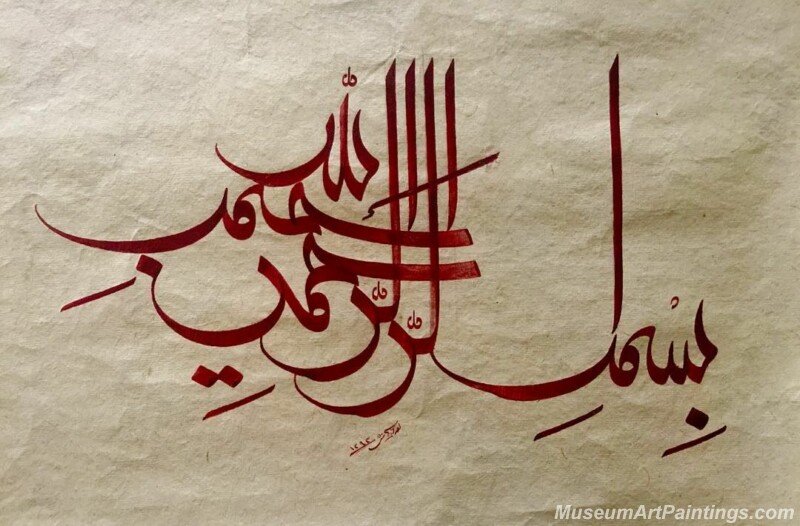 بِسْمِ اللّٰه الرَّحمنِ الرَّحيمِ
MuseumArtPaintings.com